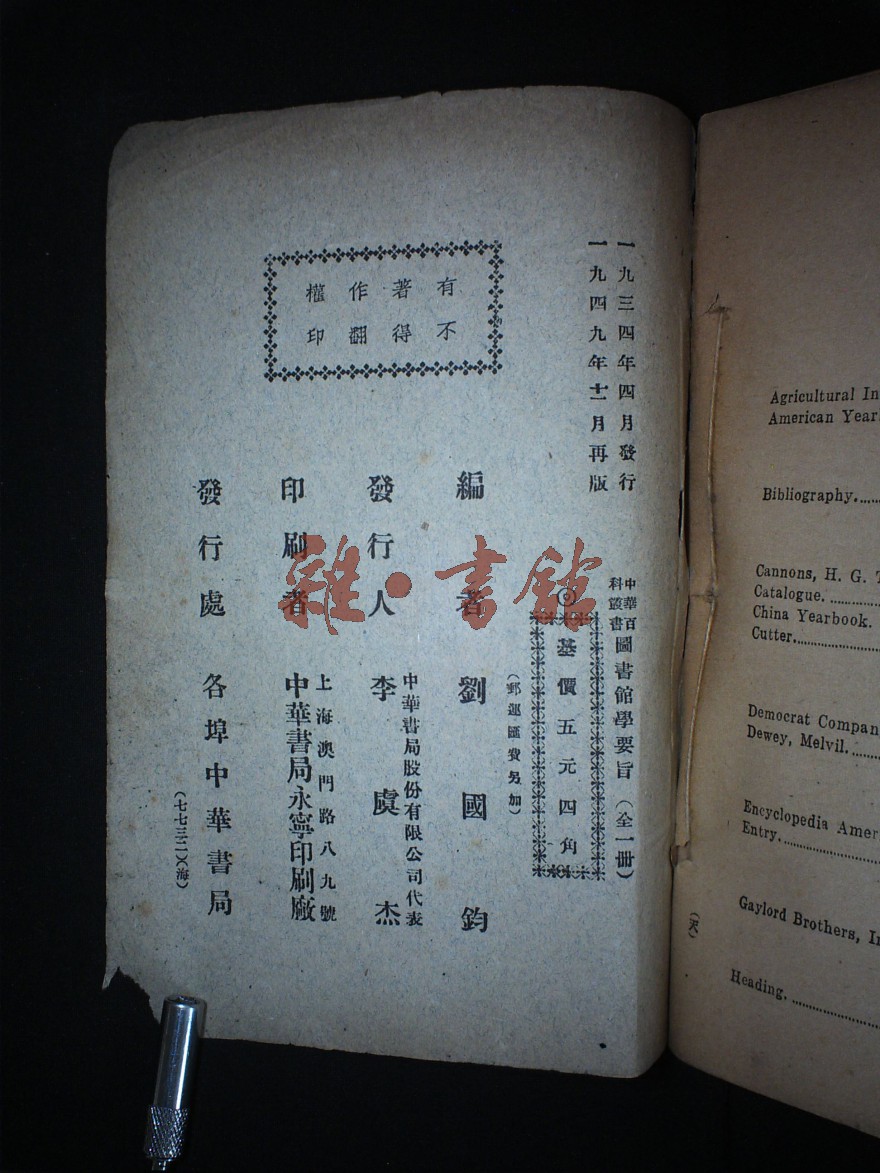 一九三四年四月發行
一九四九年十二月再版
有著作權
不得翻印
中華百科叢書
圖書館學要旨（全一冊）
◎基價五元四角
（郵運匯費另加）
編者 劉國鈞
發行人 中華書局股份有限公司代表 李虞杰
印刷者 上海澳門路八九號 中華書局永寧印刷廠
發行處 各埠中華書局
（七七三二）（海）
雜·書館
Agricultural In
American Year
Bibliography.
Cannons, H. G. T
Catalogue.
China Yearbook.
Cutter
Democrat Compan
Dewey, Melvil.
Encyclopedia Amer
Entry.
Gaylord Brothers, In
Heading.